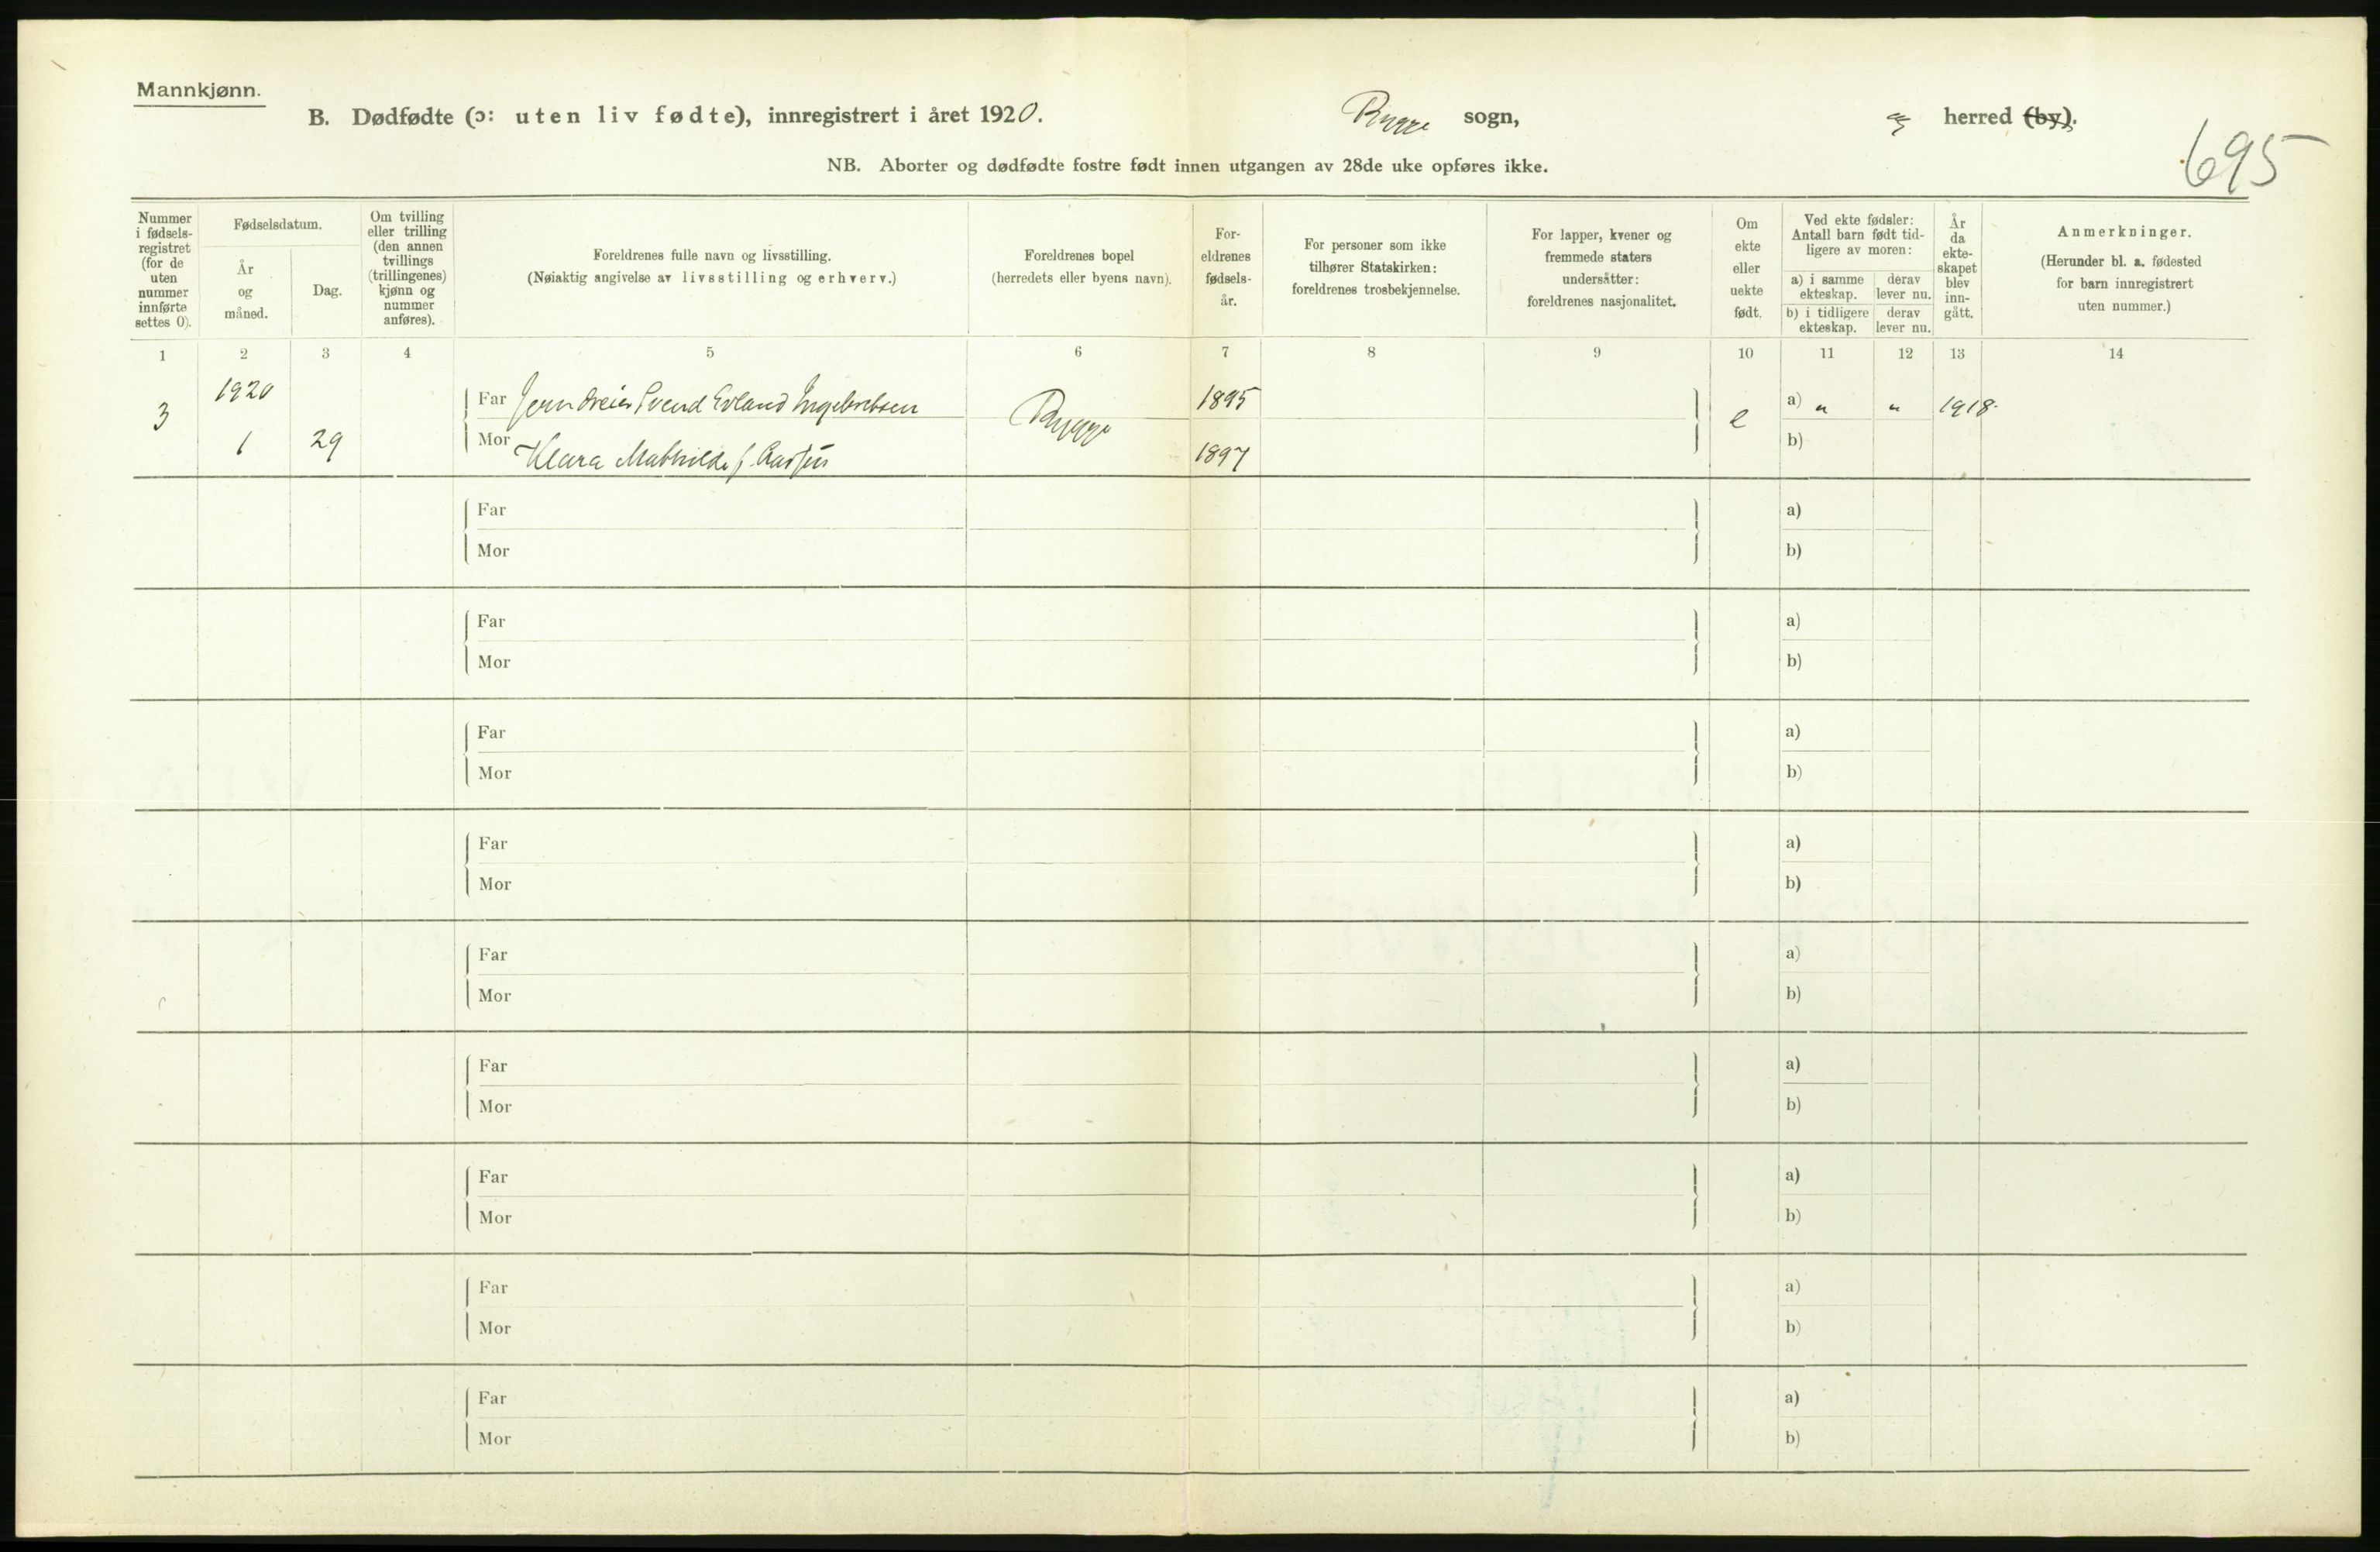 Mannkjønn.
B. Dødfødte (ɔ: uten liv fødte), innregistrert i året 1920. Rygge sogn, herred (by).
695
NB. Aborter og dødfødte fostre født innen utgangen av 28de uke opføres ikke.
Nummer i fødsels-registret (for de uten nummer innførte settes 0).
Fødselsdatum.
År og måned.
Dag.
Om tvilling eller trilling (den annen tvillings (trillingenes) kjønn og nummer anføres).
Foreldrenes fulle navn og livsstilling.
(Nøiaktig angivelse av livsstilling og erhverv.)
Foreldrenes bopel
(herredets eller byens navn).
For-eldrenes fødsels-år.
For personer som ikke tilhører Statskirken: foreldrenes trosbekjennelse.
For lapper, kvener og fremmede staters undersåtter: foreldrenes nasjonalitet.
Om ekte eller uekte født.
Ved ekte fødsler: Antall barn født tid-ligere av moren:
a) i samme ekteskap.
derav lever nu.
b) i tidligere ekteskap.
derav lever nu.
År da ekte-skapet blev inn-gått.
Anmerkninger.
(Herunder bl. a. fødested for barn innregistrert uten nummer.)
1 2 3 4 5 6 7 8 9 10 11 12 13 14
3 1920 1 29
Far Svend Erland Ingebretsen Rygge 1895 e a) " " 1918.
Mor Klara Mathilde f. 1897 b)
Far a)
Mor b)
Far a)
Mor b)
Far a)
Mor b)
Far a)
Mor b)
Far a)
Mor b)
Far a)
Mor b)
Far a)
Mor b)
Far a)
Mor b)
Far a)
Mor b)